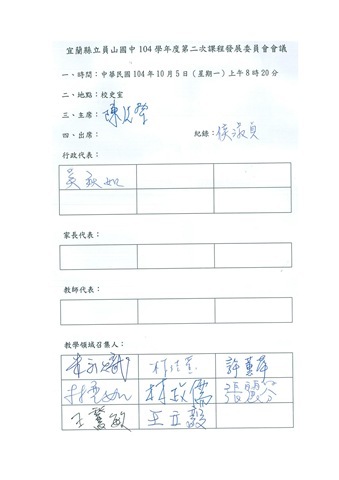 宜蘭縣立員山國中 104 學年度第二次課程發展委員會會議
一、時間：中華民國 104 年 10 月 5 日（星期一）上午 8 時 20 分
二、地點：校史室
三、主席：陳
四、出席： 紀錄：侯淑貞
行政代表：
吳秋如
家長代表：
教師代表：
教學領域召集人：
林政儒 張
王慧敏 王立毅